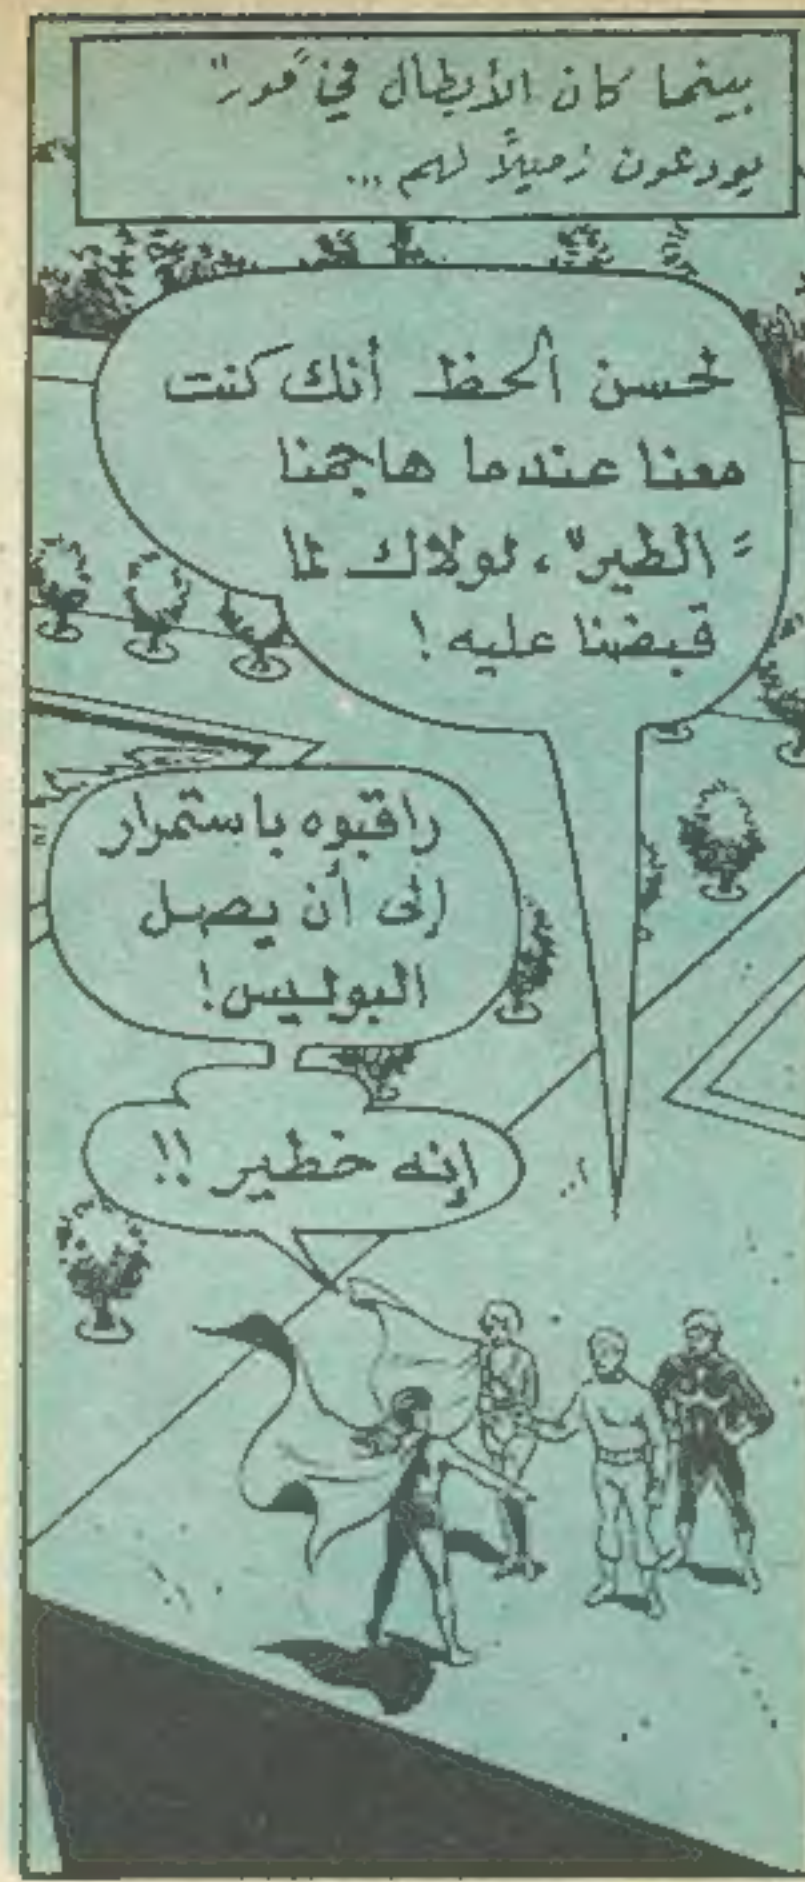 بينما كان الأبطال في "مور"
يودعون زميلاً لهم ...
لحسن الحظ أنك كنت
معنا عندما هاجمنا
"الطير"، لولاك لما
قبضنا عليه!
راقبوه باستمرار
إلى أن يصل
البوليس!
إنه خطير !!